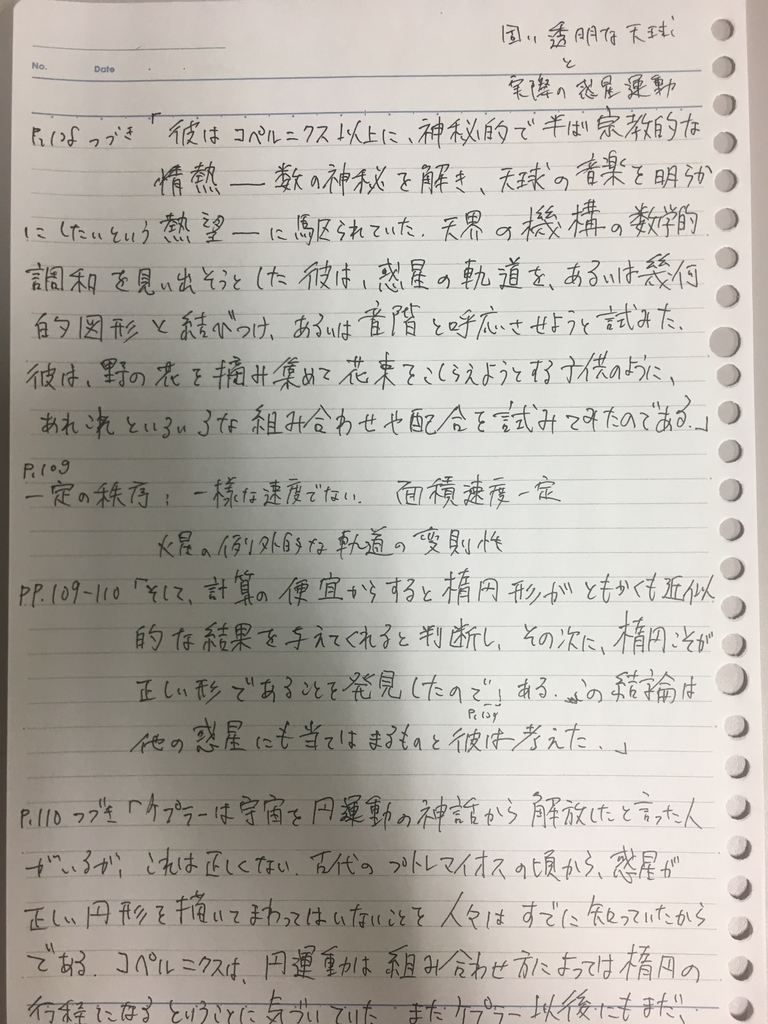 固い透明な天球
と
実際の惑星運動
No. Date
P.108 つづき「彼はコペルニクス以上に、神秘的で半ば宗教的な
情熱 — 数の神秘を解き、天球の音楽を明らか
にしたいという熱望 — に駆られていた. 天界の機構の数学的
調和を見い出そうとした彼は、惑星の軌道を、あるいは幾何
的図形と結びつけ、あるいは音階と呼応させようと試みた.
彼は、野の花を摘み集めて花束をこしらえようとする子供のように、
あれこれといろいろな組み合わせや配合を試みてみたのである.」
P.109
一定の秩序; 一様な速度でない. 面積速度一定
火星の例外的な軌道の変則性
PP.109-110「そして、計算の便宜からすると楕円形がともかくも近似
的な結果を与えてくれると判断し、その次に、楕円こそが
正しい形であることを発見したのである. この結論は
他の惑星にも当てはまるものと彼は考えた.」
P.110 つづき「ケプラーは宇宙を円運動の神話から解放したと言った人
がいるが、これは正しくない. 古代のプトレマイオスの頃から、惑星が
正しい円形を描いてまわってはいないことを人々はすでに知っていたから
である. コペルニクスは、円運動は組み合わせ方によっては楕円の
行程になるということに気づいていた. またケプラー以後にもまだ、